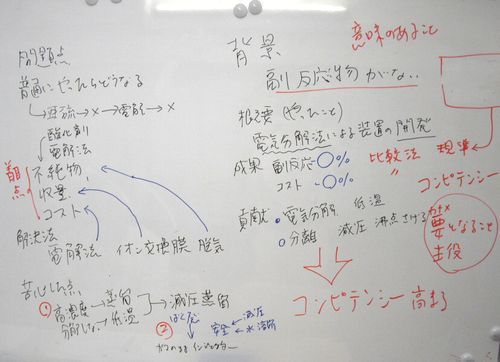 問題点
普通にやったらどうなる
→ × → 電解 → ×
酸化剤
電解法
着目点
不純物
収量
コスト
解決法
電解法 イオン交換膜 脱気
苦心した点
① 高濃度 → 蒸留
低温
→ 減圧蒸留
②
安全 ← 減圧
背景
副反応物がな..
概要 (やったこと)
電気分解法による装置の開発
成果 副反応 ○%
コスト ○%
貢献 電気分解 低温
分離 減圧 沸点さげる
意味のあること
比較法 規準
コンピテンシー
要となること
主役
コンピテンシー高まる